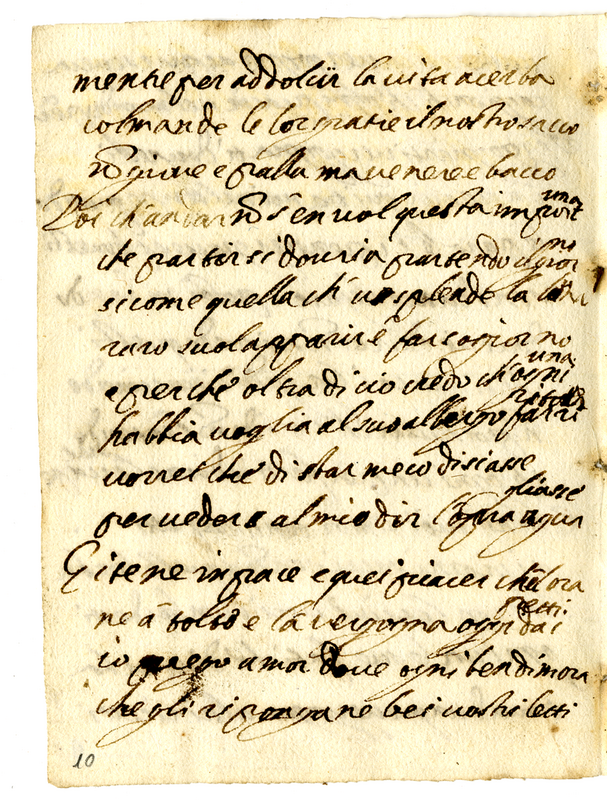 mente per addolcir la vita acerba
colmando le lor gratie il nostro sacco
nõ giove e palla ma venere e bacco
Poi ch'andar nõ sen vol questa importuna
che partir si douria partendo il giorno
si come quella ch' u' splende la luna
raro suol apparir é far sogiorno
e perche oltra di cio credo ch' ogni una
habbia voglia al suo albergo far ri
vorrei che di star meco disiasse
per veder al mio dir l'opra gliasse
Gitene in pace e quei piacer ch'alora
ne á tolto e la vergogna oggi
io priego amor dove ogni ben dimora
che gli ri pongane bei vostri letti
10